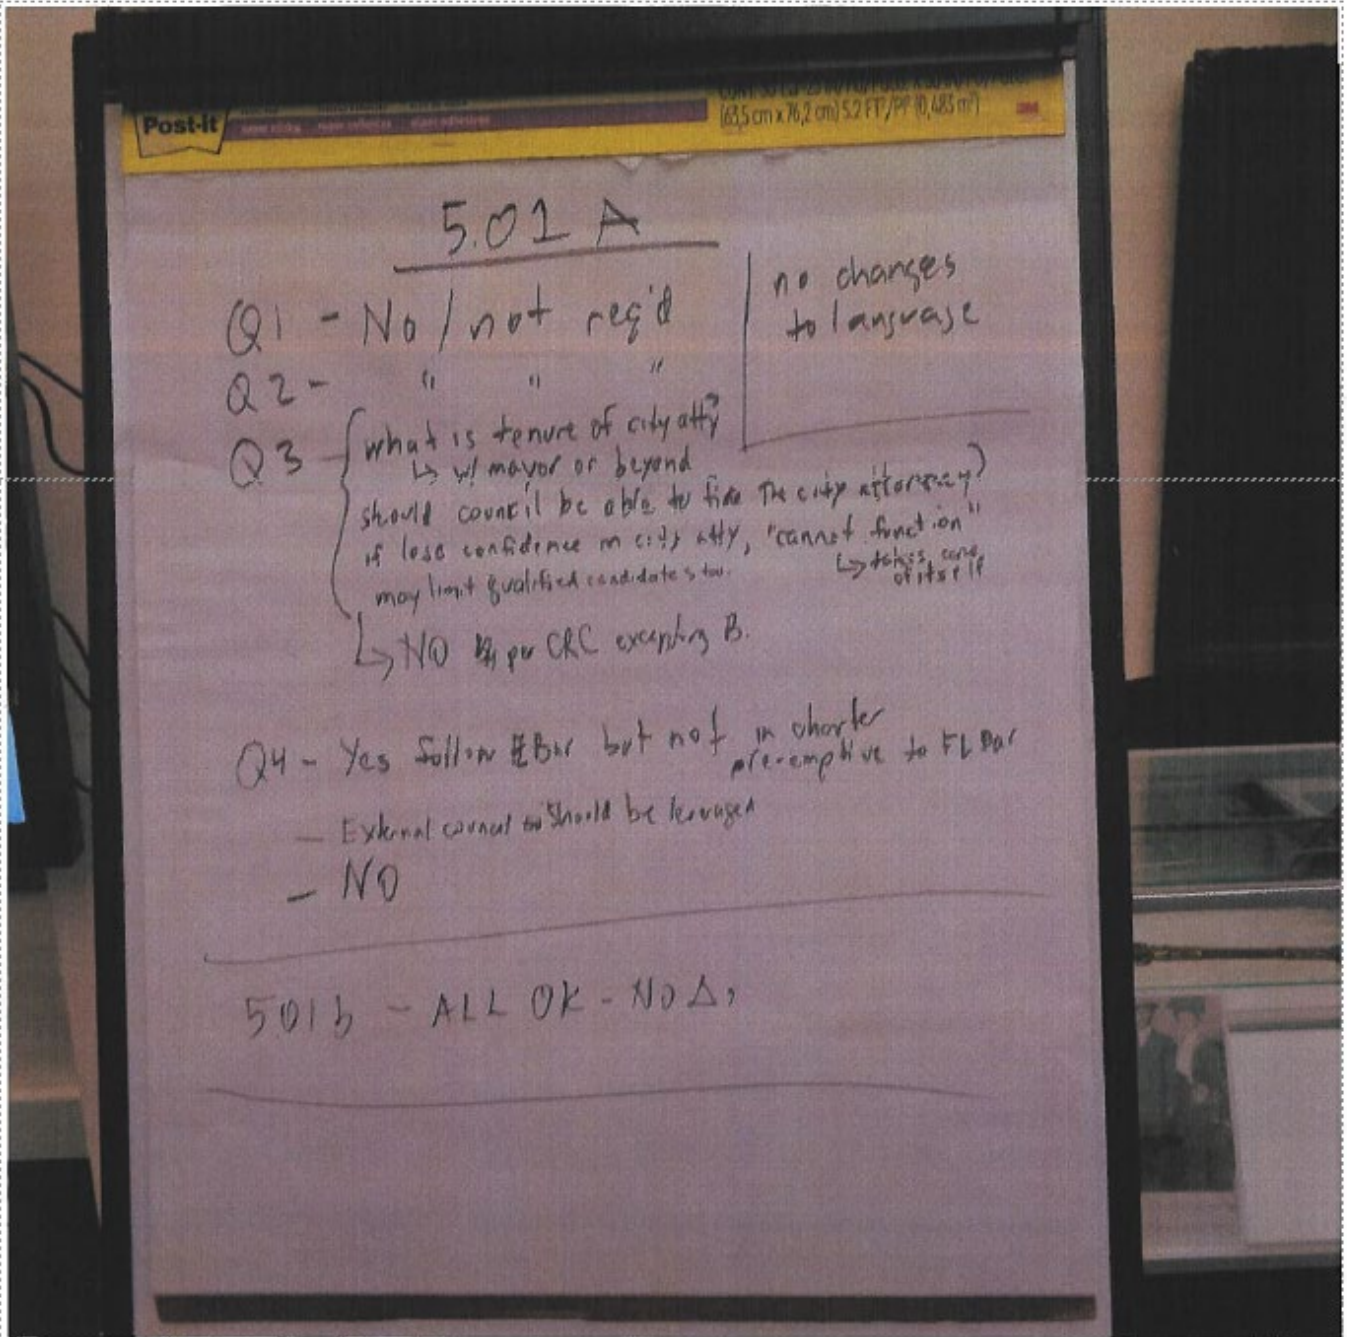 Post-it
(63,5 cm x 76,2 cm) 5.2 FT²/PP (0,483 m²)
5.01 A
Q1 - No / not req'd
no changes
to language
Q2 - " " "
Q3 - what is tenure of city atty?
↳ w/ mayor or beyond
should council be able to fire the city attorney?
if lose confidence in city atty, "cannot function"
↳ takes care
of itself
may limit qualified candidates too.
↳ NO per CRC excepting B.
Q4 - Yes follow Bar but not in charter
pre-emptive to FL Bar
- External counsel should be leveraged
- NO
501b - ALL OK - NO Δ,